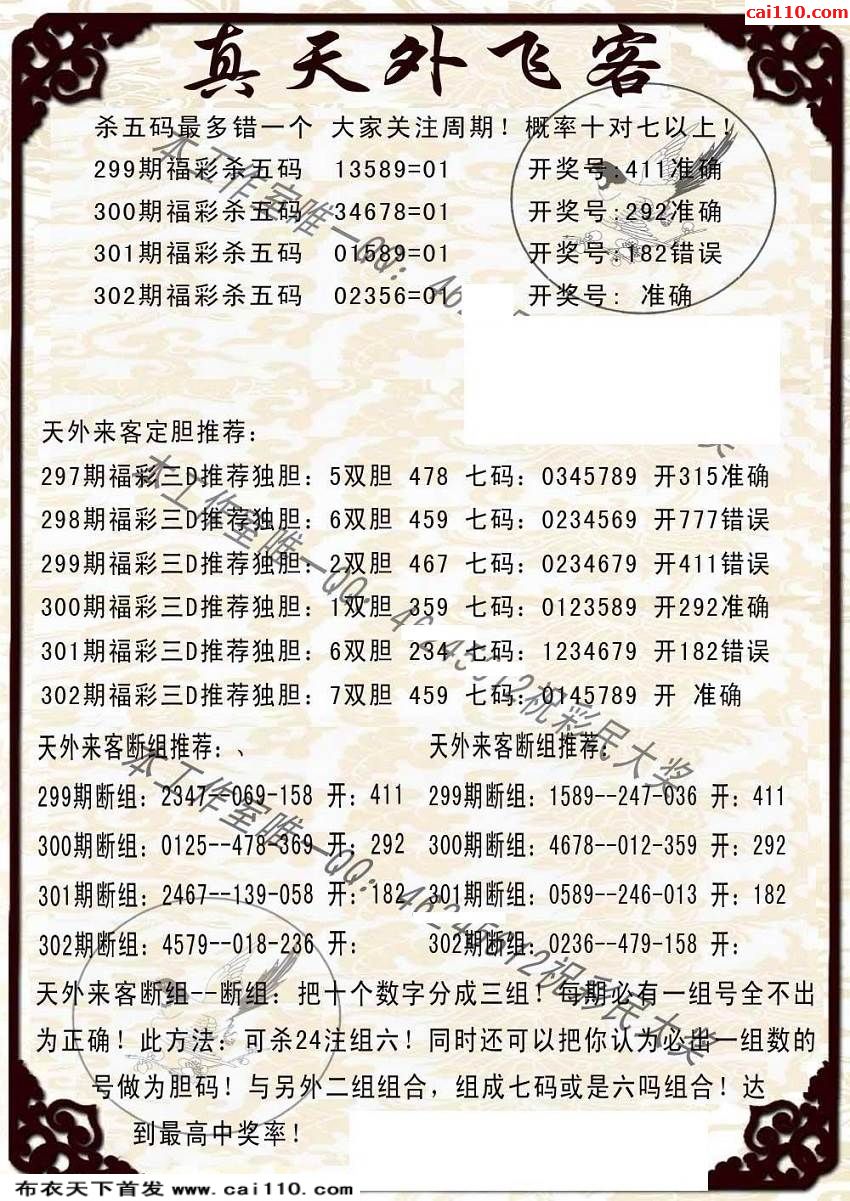 cai110.com
真天外飞客
杀五码最多错一个 大家关注周期！概率十对七以上！
299期福彩杀五码 13589=01 开奖号:411准确
300期福彩杀五码 34678=01 开奖号:292准确
301期福彩杀五码 01589=01 开奖号:182错误
302期福彩杀五码 02356=01 开奖号: 准确
天外来客定胆推荐：
297期福彩三D推荐独胆：5双胆 478 七码：0345789 开315准确
298期福彩三D推荐独胆：6双胆 459 七码：0234569 开777错误
299期福彩三D推荐独胆：2双胆 467 七码：0234679 开411错误
300期福彩三D推荐独胆：1双胆 359 七码：0123589 开292准确
301期福彩三D推荐独胆：6双胆 234 七码：1234679 开182错误
302期福彩三D推荐独胆：7双胆 459 七码：0145789 开 准确
天外来客断组推荐：、 天外来客断组推荐：
299期断组：2347--069-158 开：411 299期断组：1589--247-036 开：411
300期断组：0125--478-369 开：292 300期断组：4678--012-359 开：292
301期断组：2467--139-058 开：182 301期断组：0589--246-013 开：182
302期断组：4579--018-236 开： 302期断组：0236--479-158 开：
天外来客断组--断组：把十个数字分成三组！每期必有一组号全不出
为正确！此方法：可杀24注组六！同时还可以把你认为必出一组数的
号做为胆码！与另外二组组合，组成七码或是六吗组合！达
到最高中奖率！
本工作室唯一QQ：
本工作室唯一QQ： 祝彩民大奖
本工作室唯一QQ： 祝彩民大奖
布衣天下首发 www.cai110.com